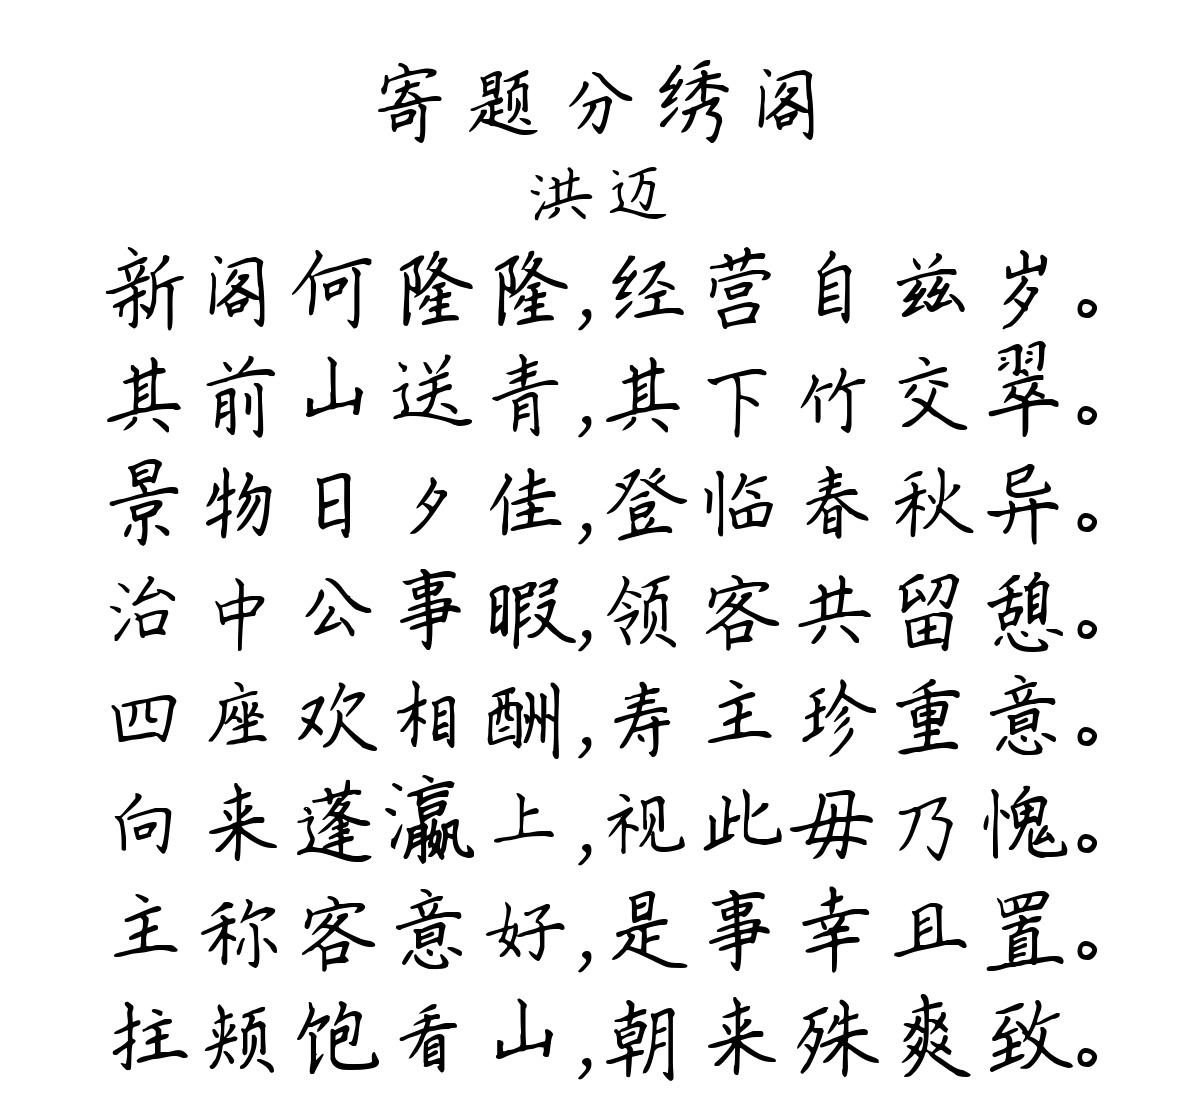 寄题分绣阁
洪迈
新阁何隆隆,经营自兹岁。
其前山送青,其下竹交翠。
景物日夕佳,登临春秋异。
治中公事暇,领客共留憩。
四座欢相酬,寿主珍重意。
向来蓬瀛上,视此毋乃愧。
主称客意好,是事幸且置。
拄颊饱看山,朝来殊爽致。